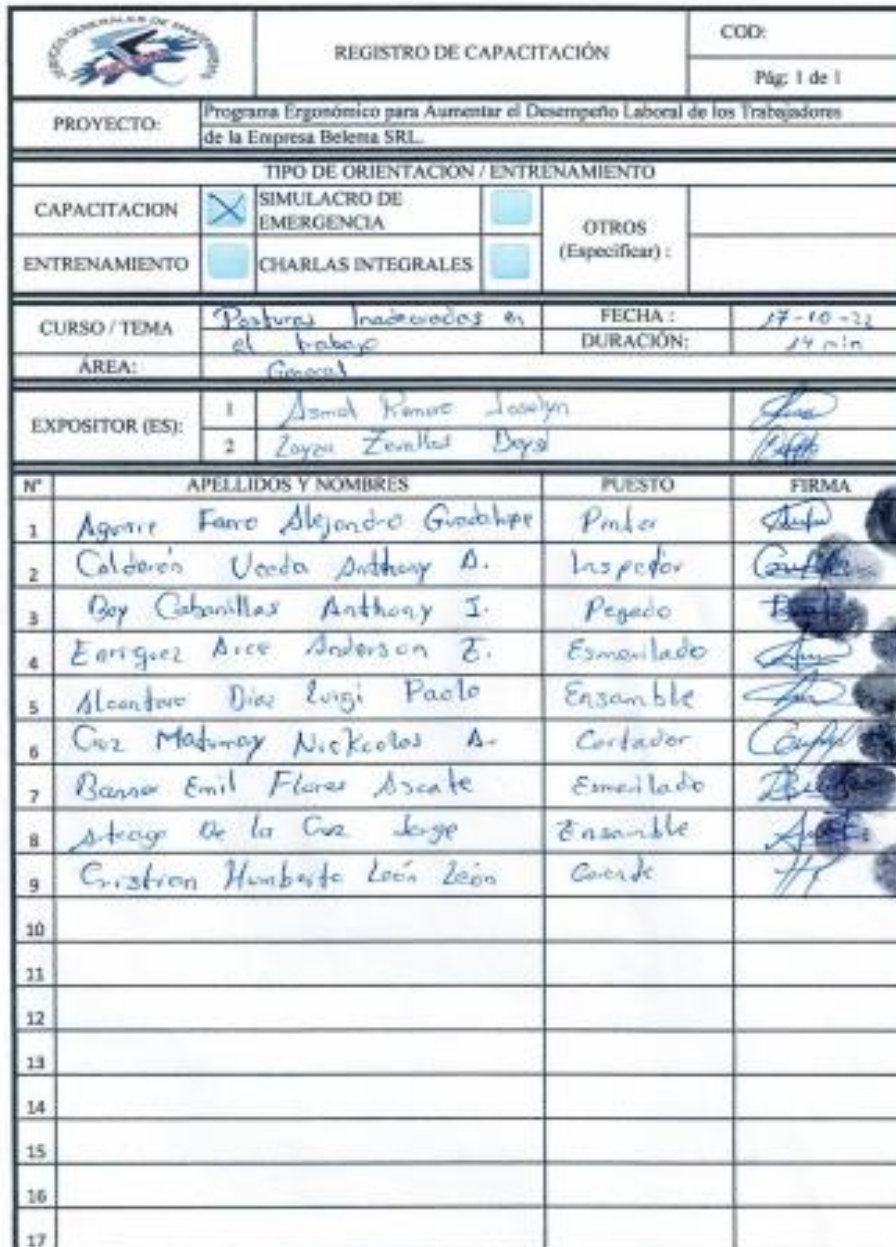 SERVICIOS GENERALES DE
REGISTRO DE CAPACITACIÓN
COD:
Pág: 1 de 1
PROYECTO:
Programa Ergonómico para Aumentar el Desempeño Laboral de los Trabajadores
de la Empresa Belema SRL.
TIPO DE ORIENTACION / ENTRENAMIENTO
CAPACITACION X SIMULACRO DE EMERGENCIA
OTROS (Especificar) :
ENTRENAMIENTO CHARLAS INTEGRALES
CURSO / TEMA Posturas Inadecuadas en
el trabajo
FECHA : 17-10-22
DURACIÓN: 14 min
ÁREA: General
EXPOSITOR (ES):
1 Asmal Joselyn
2 Zevallos
N° APELLIDOS Y NOMBRES PUESTO FIRMA
1 Aguirre Farro Alejandro Guadalupe Pintor
2 Calderón Uceda Anthony A. Inspector
3 Boy Cabanillas Anthony I. Pegado
4 Enriquez Arce Anderson E. Esmerilado
5 Alcantara Diaz Luigi Paolo Ensamble
6 Cruz Nickcolas A. Cortador
7 Emil Flores Ascate Esmerilado
8 Arteaga De la Cruz Jorge Ensamble
9 Cristian Humberto León León Gerente
10
11
12
13
14
15
16
17